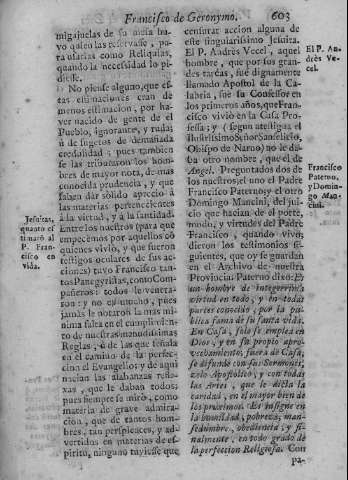 Francisco de Geronymo. 603
migajuelas de su mesa ha-
vo quien las reservasse, pa-
ra usarlas como Reliquias,
quando la necessidad lo pi-
diesse.
No piense alguno, que es-
tas estimaciones eran de
menos estimacion, por ha-
ver nacido de gente de el
Pueblo, ignorante, y ruda;
ù de sugetos de demasiada
credulidad; pues tambien
se las tributaron los hom-
bres de mayor nota, de mas
conocida prudencia, y que
saben dàr solido aprecio à
las materias pertenecientes
à la virtud, y à la santidad.
Entre los nuestros (para que
empecemos por aquellos cõ
quienes vivió, y que fueron
testigos oculares de sus ac-
ciones) tuvo Francisco tan-
tos Panegyristas, como Com-
pañeros: todos le venera-
ron: y no es mucho, pues
jamàs le notaron la mas mi-
nima falta en el cumplimien-
to de nuestras menudissimas
Reglas, ù de las que señala
en el camino de la perfec-
cion el Evangelio; y de aqui
nacian las alabanzas rele-
xas, que le daban todos;
pues siempre se mirò, como
materia de grave admira-
cion, que de tantos hom-
bres, tan perspicaces, y ad-
vertidos en materias de es-
piritu, ninguno tuviesse que
Jesuitas,
quanto es-
timarõ al
P. Fran-
cisco en
vida.
censurar accion alguna de
este singularissimo Jesuita.
El P. Andrès Vecel, aquel
hombre, que por sus gran-
des tareas, fuè dignamente
llamado Apostol de la Ca-
labria, fuè su Confessor en
los primeros años, que Fran-
cisco vivió en la Casa Pro-
fessa; y (segun atestigua el
Ilustrissimo Señor Sanfelicio,
Obispo de Narno) no le da-
ba otro nombre, que el de
Angel. Preguntados dos de
los nuestros, el uno el Padre
Francisco Paterno, y el otro
Domingo Mancini, del jui-
cio que hacian de el porte,
modo, y virtudes del Padre
Francisco, quando vivia;
dieron los testimonios si-
guientes, que oy se guardan
en el Archivo de nuestra
Provincia. Paterno dixo: Es
un hombre de integerrima
virtud en todo, y en todas
partes conocido, por la pu-
blica fama de su santa vida.
En Casa, solo se emplea en
Dios, y en su propio apro-
vechamiento; fuera de Casa,
se difunde con sus Sermones,
zelo Apostolico, y con todas
las Artes, que le dicta la
caridad, en el mayor bien de
los proximos. Es insigne en
la humildad, pobreza, man-
sedumbre, obediencia; y fi-
nalmente, en todo grado de
la perfeccion Religiosa. Con
pa-
El P. An-
drès Ve-
cel.
Francisco
Paterno,
y Domin-
go Man-
cini.